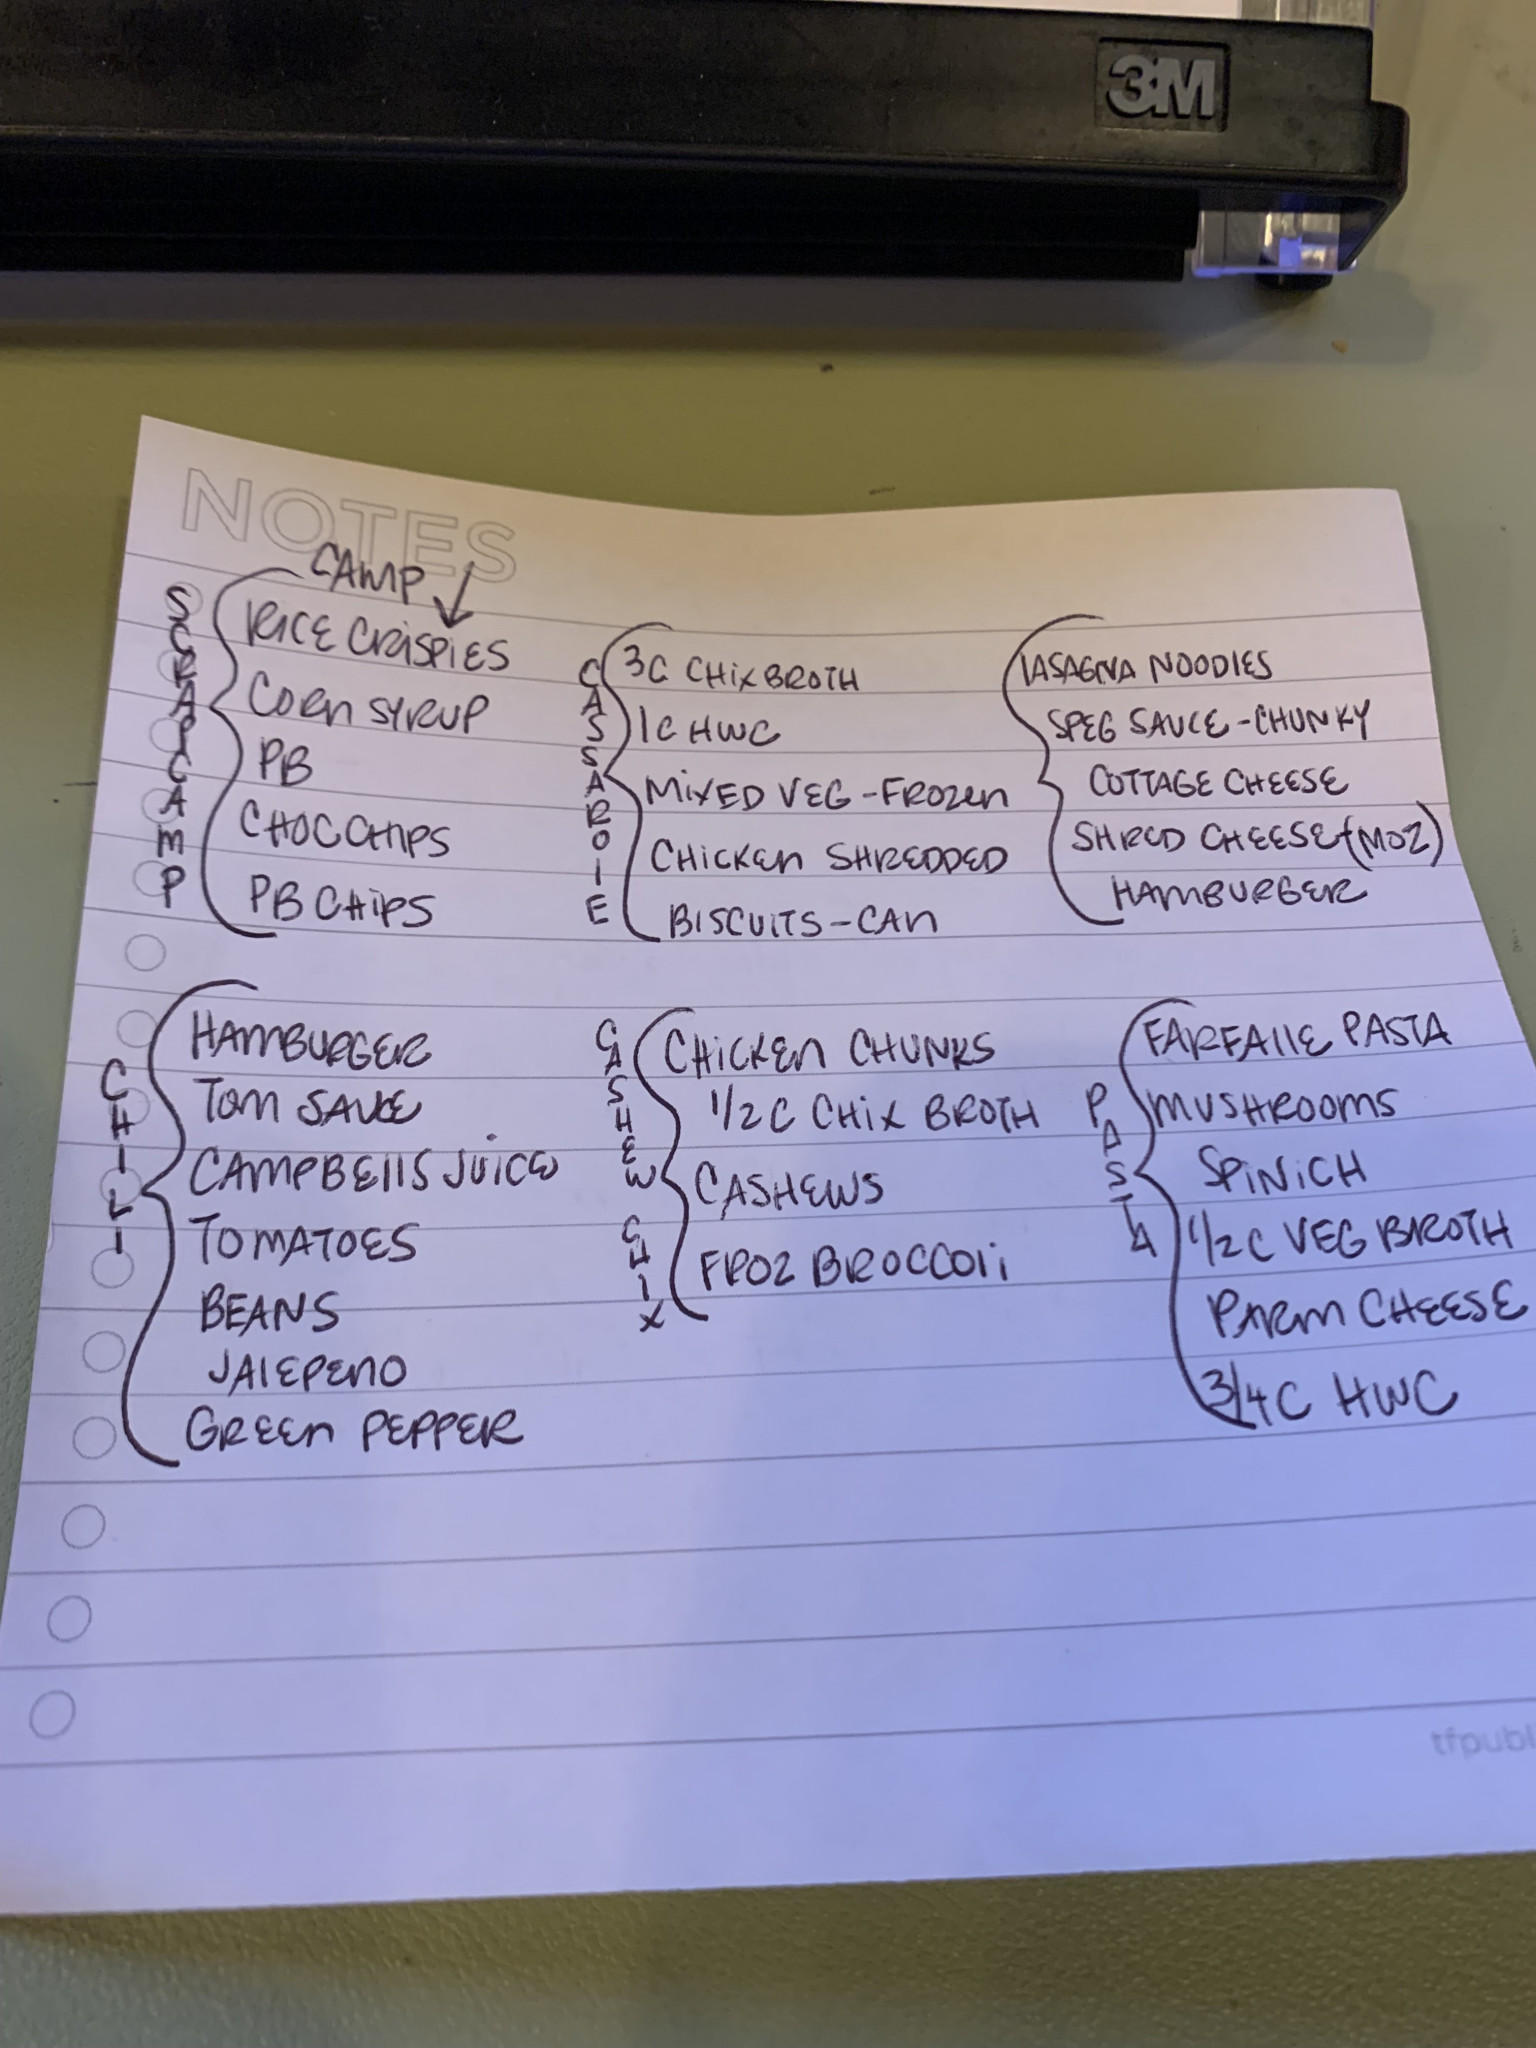 3M
NOTES
CAMP
SCRAPCAMP
RICE CRISPIES
CORN SYRUP
PB
CHOC CHIPS
PB CHIPS
CASSAROLE
3C CHIX BROTH
1C HWC
MIXED VEG - FROZEN
CHICKEN SHREDDED
BISCUITS - CAN
LASAGNA NOODLES
SPEG SAUCE - CHUNKY
COTTAGE CHEESE
SHRED CHEESE (MOZ)
HAMBURGER
CHILI
HAMBURGER
TOM SAUCE
CAMPBELLS JUICE
TOMATOES
BEANS
JALEPENO
GREEN PEPPER
CASHEW CHIX
CHICKEN CHUNKS
1/2 C CHIX BROTH
CASHEWS
FROZ BROCCOLI
PASTA
FARFALLE PASTA
MUSHROOMS
SPINICH
1/2 C VEG BROTH
PARM CHEESE
3/4 C HWC
tfpubl